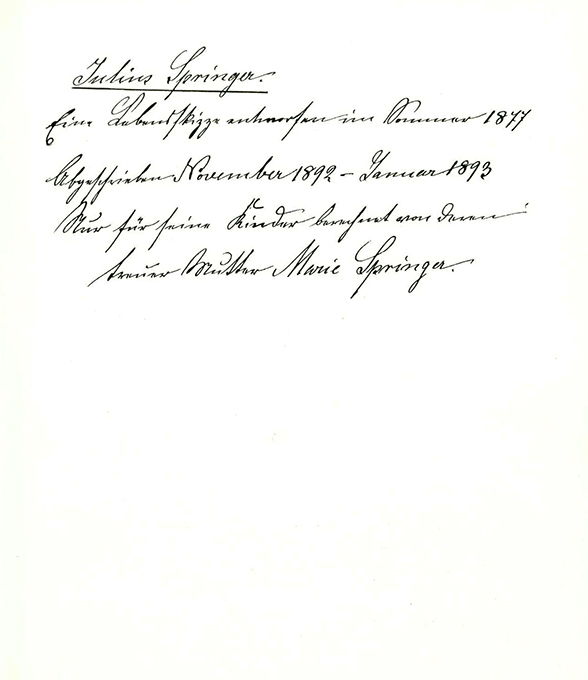 Julius Springer.
Eine Lebensskizze entworfen im Sommer 1877
Abgeschrieben November 1892 – Januar 1893
Nur für seine Kinder berechnet von deren
treuer Mutter Marie Springer.